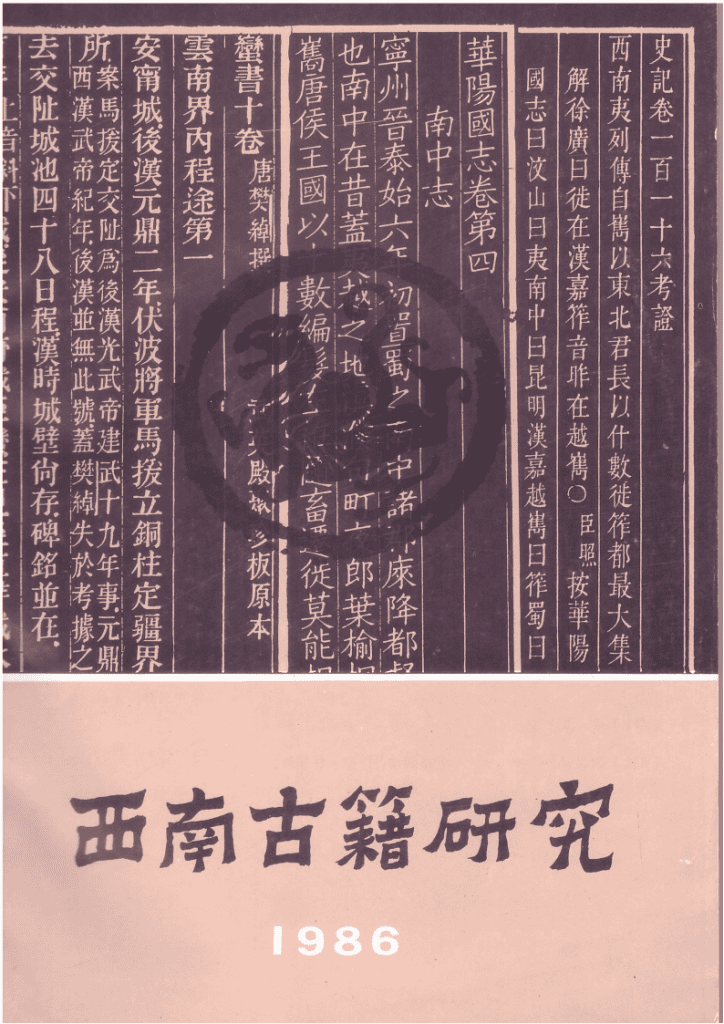 史記卷一百一十六考證
西南夷列傳自嶲以東北君長以什數徙筰都最大集
解徐廣曰徙在漢嘉筰音昨在越嶲〇臣照按華陽
國志曰汶山曰夷南中曰昆明漢嘉越嶲曰筰蜀曰
華陽國志卷第四
南中志
寧州晉泰始六年初置蜀之南中諸郡庲降都
也南中在昔蓋夷越之地町夜郎葉榆
嶲唐侯王國以十數編髮隨畜遷徙莫能
蠻書十卷 唐樊綽撰 武英殿聚珍板原本
雲南界內程途第一
安甯城後漢元鼎二年伏波將軍馬援立銅柱定疆界
所.案馬援定交阯爲後漢光武帝建武十九年事.元鼎
西漢武帝紀年.後漢並無此號.蓋樊綽失於考據之
去交阯城池四十八日程.漢時城壁尙存.碑銘並在.
西南古籍研究
1986